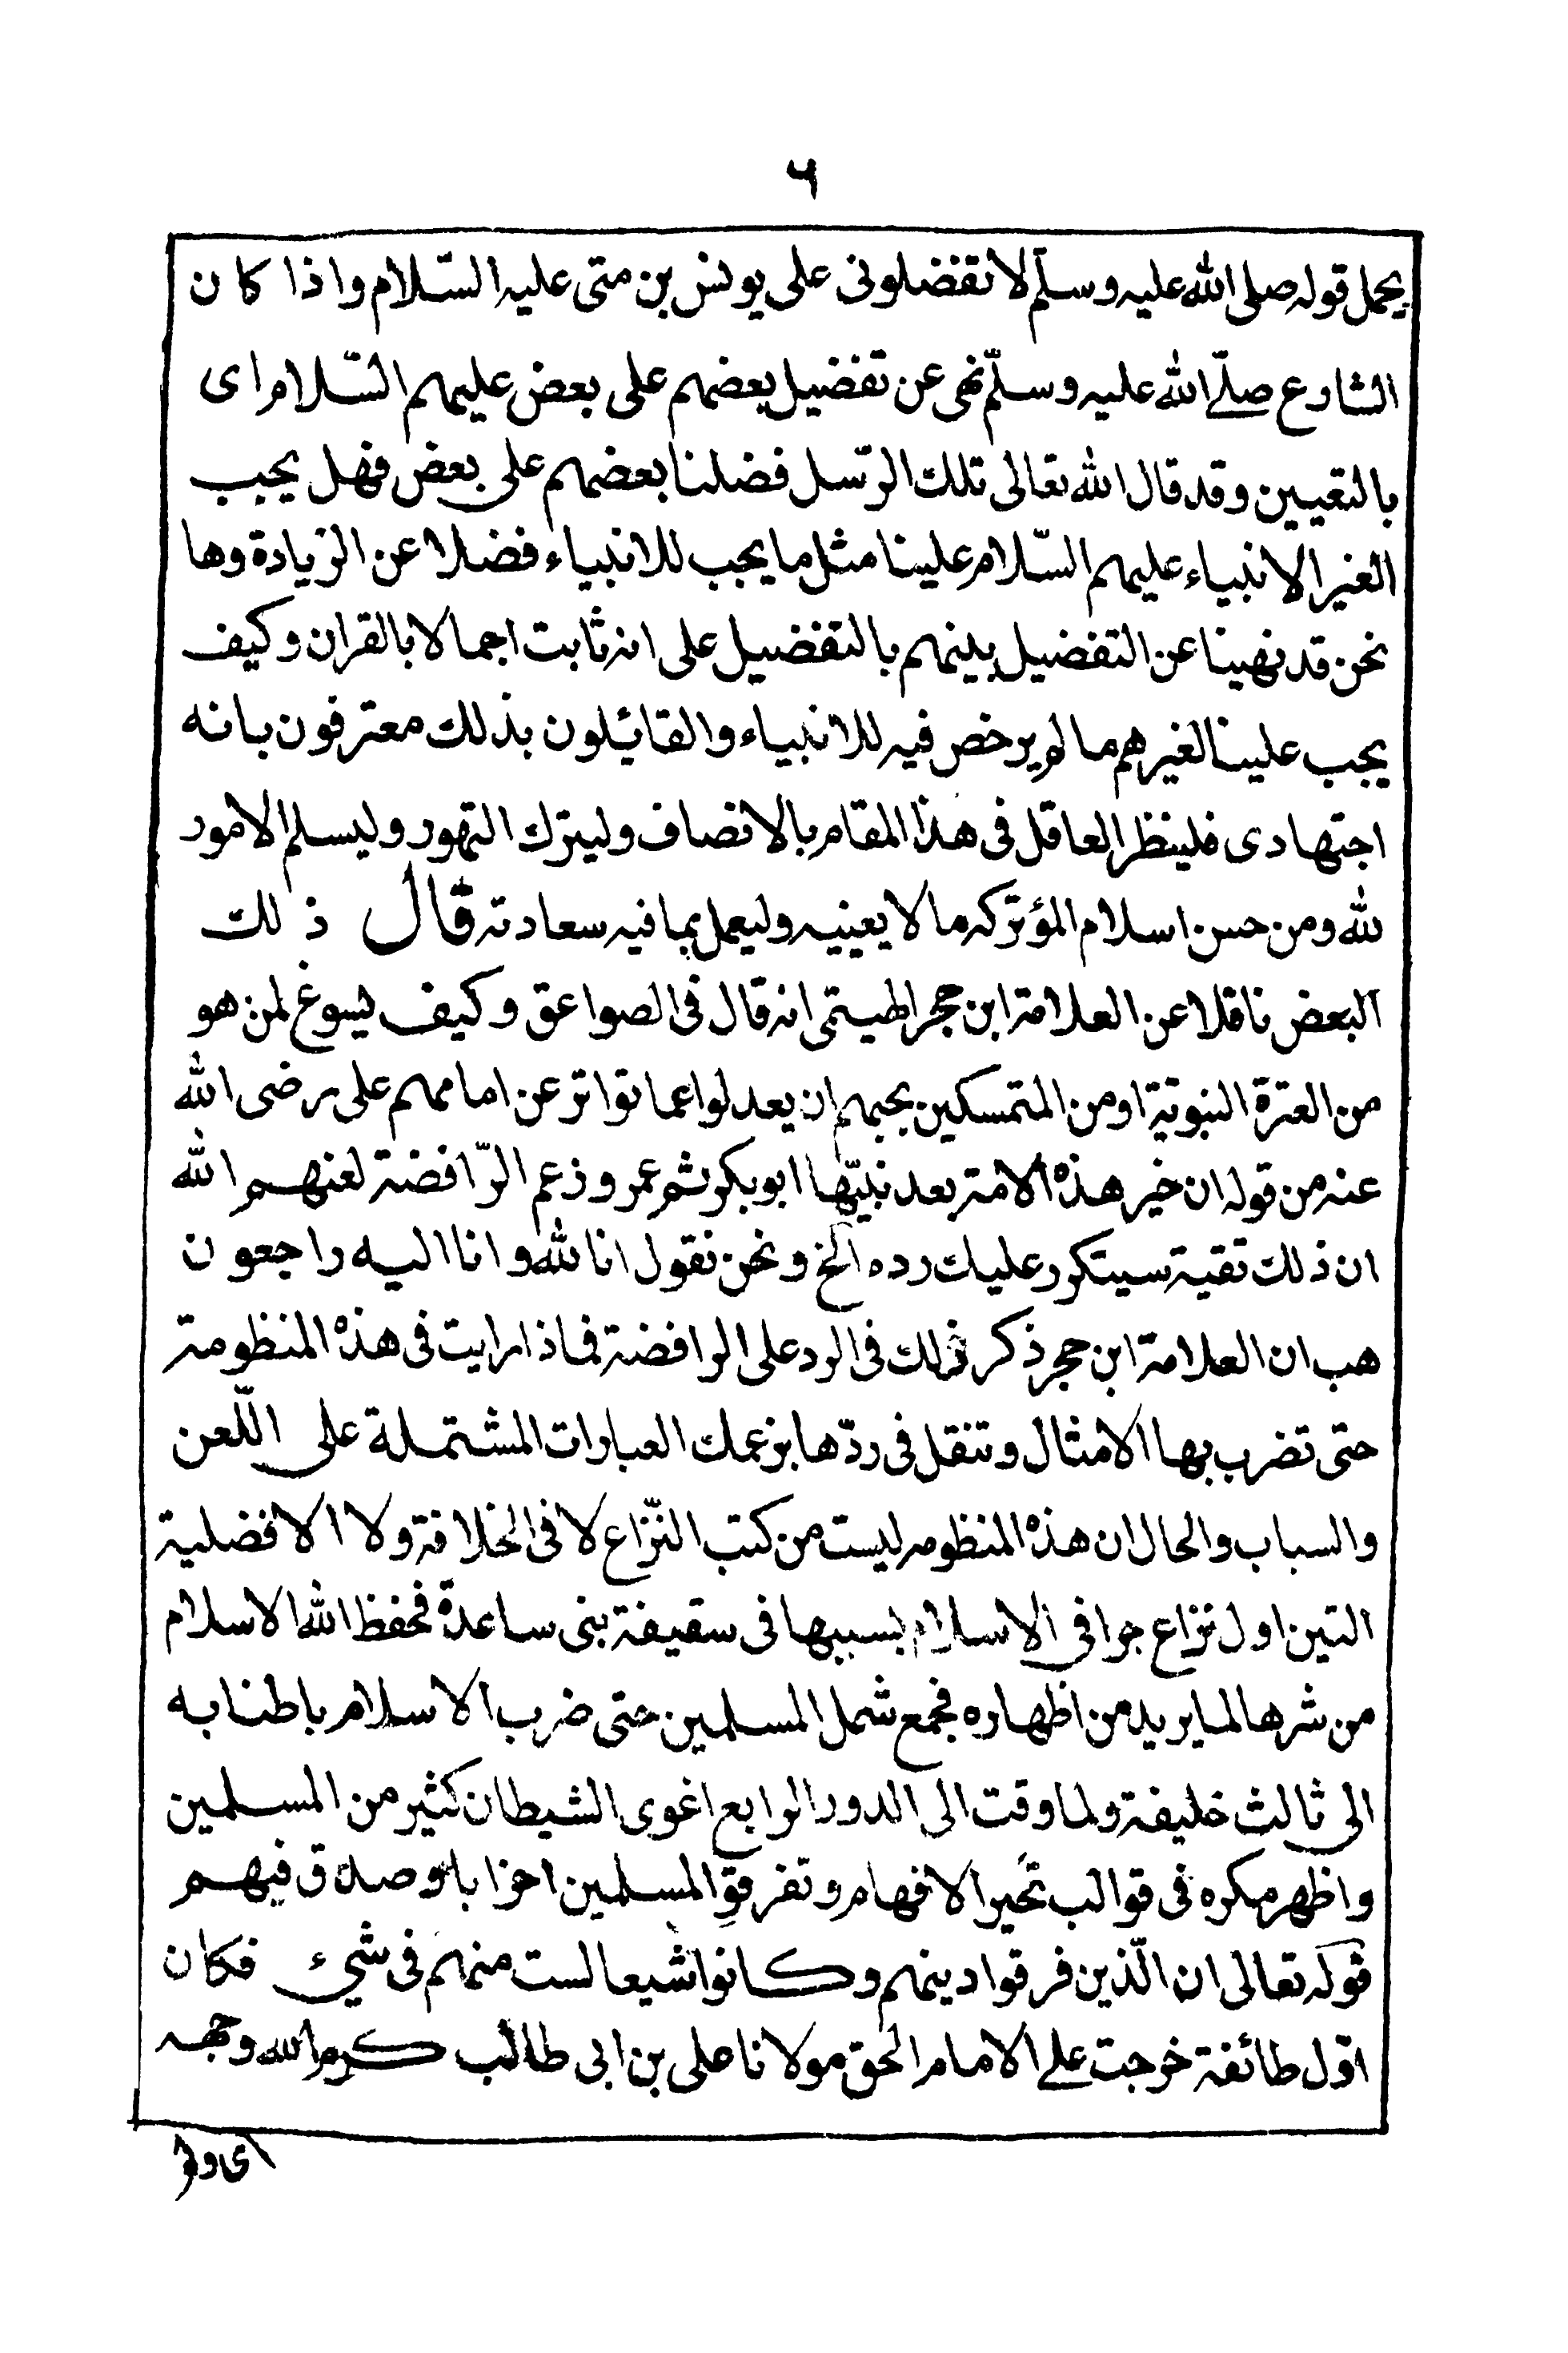 ٦
يحمل قوله صلى الله عليه وسلّم لا تفضلونى على يونس بن متى عليه السّلام واذا كان
الشارع صلّے الله عليه وسلّم نهى عن تفضيل بعضهم على بعض عليهم السّلام اى
بالتعيين وقد قال الله تعالى تلك الرّسل فضلنا بعضهم على بعض فهل يجب
الغير الانبياء عليهم السّلام علينا مثل ما يجب للانبياء فضلا عن الزيادة وها
نحن قد نهينا عن التفضيل بينهم بالتفضيل على انه ثابت اجمالا بالقران وكيف
يجب علينا لغيرهم ما لم يرخص فيه للانبياء والقائلون بذلك معترفون بانه
اجتهادى فلينظر العاقل فى هذا المقام بالانصاف وليترك التهور وليسلم الامور
لله ومن حسن اسلام المؤ تركه ما لا يعينيه وليعمل بما فيه سعادته قال ذلك
البعض ناقلا عن العلامة ابن حجر الهيتمى انه قال فى الصواعق وكيف يسوغ لمن هو
من العترة النبوية اومن المتمسكين بحبهم ان يعدلوا عما تواتر عن امامهم على رضى الله
عنه من قوله ان خير هذه الامة بعد نبيّها ابوبكر ثم عمر وزعم الرّافضة لعنهم الله
ان ذلك تقية سيتكرر عليك رده الخ ونحن نقول انا لله وانا اليه راجعون
هب ان العلامة ابن حجر ذكر ذلك فى الرد على الرافضة فماذا رايت فى هذه المنظومة
حتى تضرب بها الامثال وتنقل فى ردّها بزعمك العبارات المشتملة على اللّعن
والسباب والحال ان هذه المنظومه ليست من كتب النّزاع لا فى الخلافة ولا الافضلية
التين اول نزاع جرا فى الاسلام بسببها فى سقيفة بنى ساعدة فحفظ الله الاسلام
من شرها لما يريد من اظهاره فجمع شمل المسلمين حتى ضرب الاسلام باطنابه
الى ثالث خليفة ولما وقت الى الدور الرابع اغوى الشيطان كثير من المسلمين
واظهر مكره فى قوالب تحير الافهام وتفرقة المسلمين احزابا وصدق فيهم
قوله تعالى ان الّذين فرقوا دينهم وكانوا شيعا لست منهم فى شيء فكان
اوّل طائفة خرجت علے الامام الحق مولانا على بن ابى طالب كرم الله وجهه